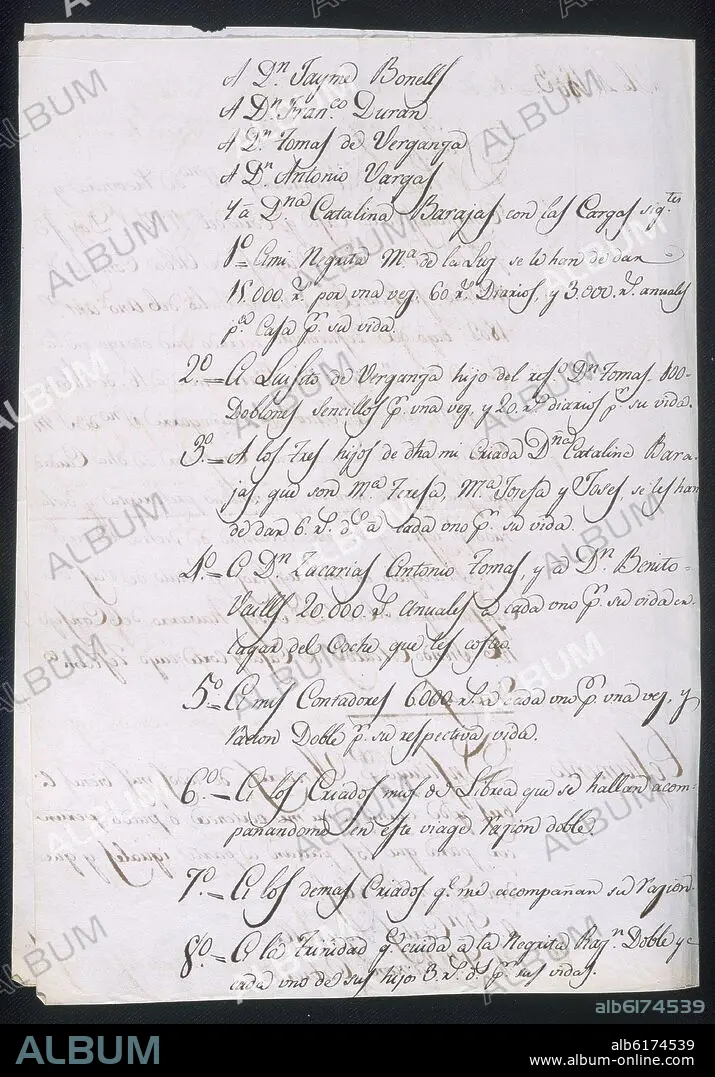 A Dn. Jayme Bonells
A Dn. Franco. Duran
A Dn. Tomas de Verganza
A Dn. Antonio Vargas
Y a Dna. Catalina Barajas con las Cargas sigtes
1o = A mi Negrita Ma. de la Luz se le han de dar
15.000 rs. por una vez, 60 rs. Diarios, y 3.000 rs. anuales
pa. Casa pr. su vida.
2o. = A Luisito de Verganza hijo del refo. Dn. Tomas 100
Doblones sencillos pr. una vez, y 20 rs. diarios pr. su vida.
3o. = A los tres hijos de dha mi criada Dna. Catalina Bara-
jas que son Ma. Teresa, Ma. Josefa y Josef, se les han
de dar 6 rs. ds. a cada uno pr. su vida.
4o. = A Dn. Zacarias Antonio Tomas, y a Dn. Benito
Vaills 20.000 rs. anuales a cada uno pr. su vida en
lugar del Coche que les costeo.
5o = A mis Contadores 6.000 rs. a cada uno pr. una vez, y
racion Doble pr. su respectiva vida.
6o. = A los Criados mios de Librea que se hallan acom-
pañandome en este viage razion doble.
7o. = A los demas Criados qe. me acompañan su razion
8o. = A la Trinidad qe. cuida a la Negrita Razn. Doble y a
cada uno de sus hijos 3 rs. ds. pr. sus vidas.
ALBUM
alb6174539
ALBUM
alb6174539
www.album-online.com